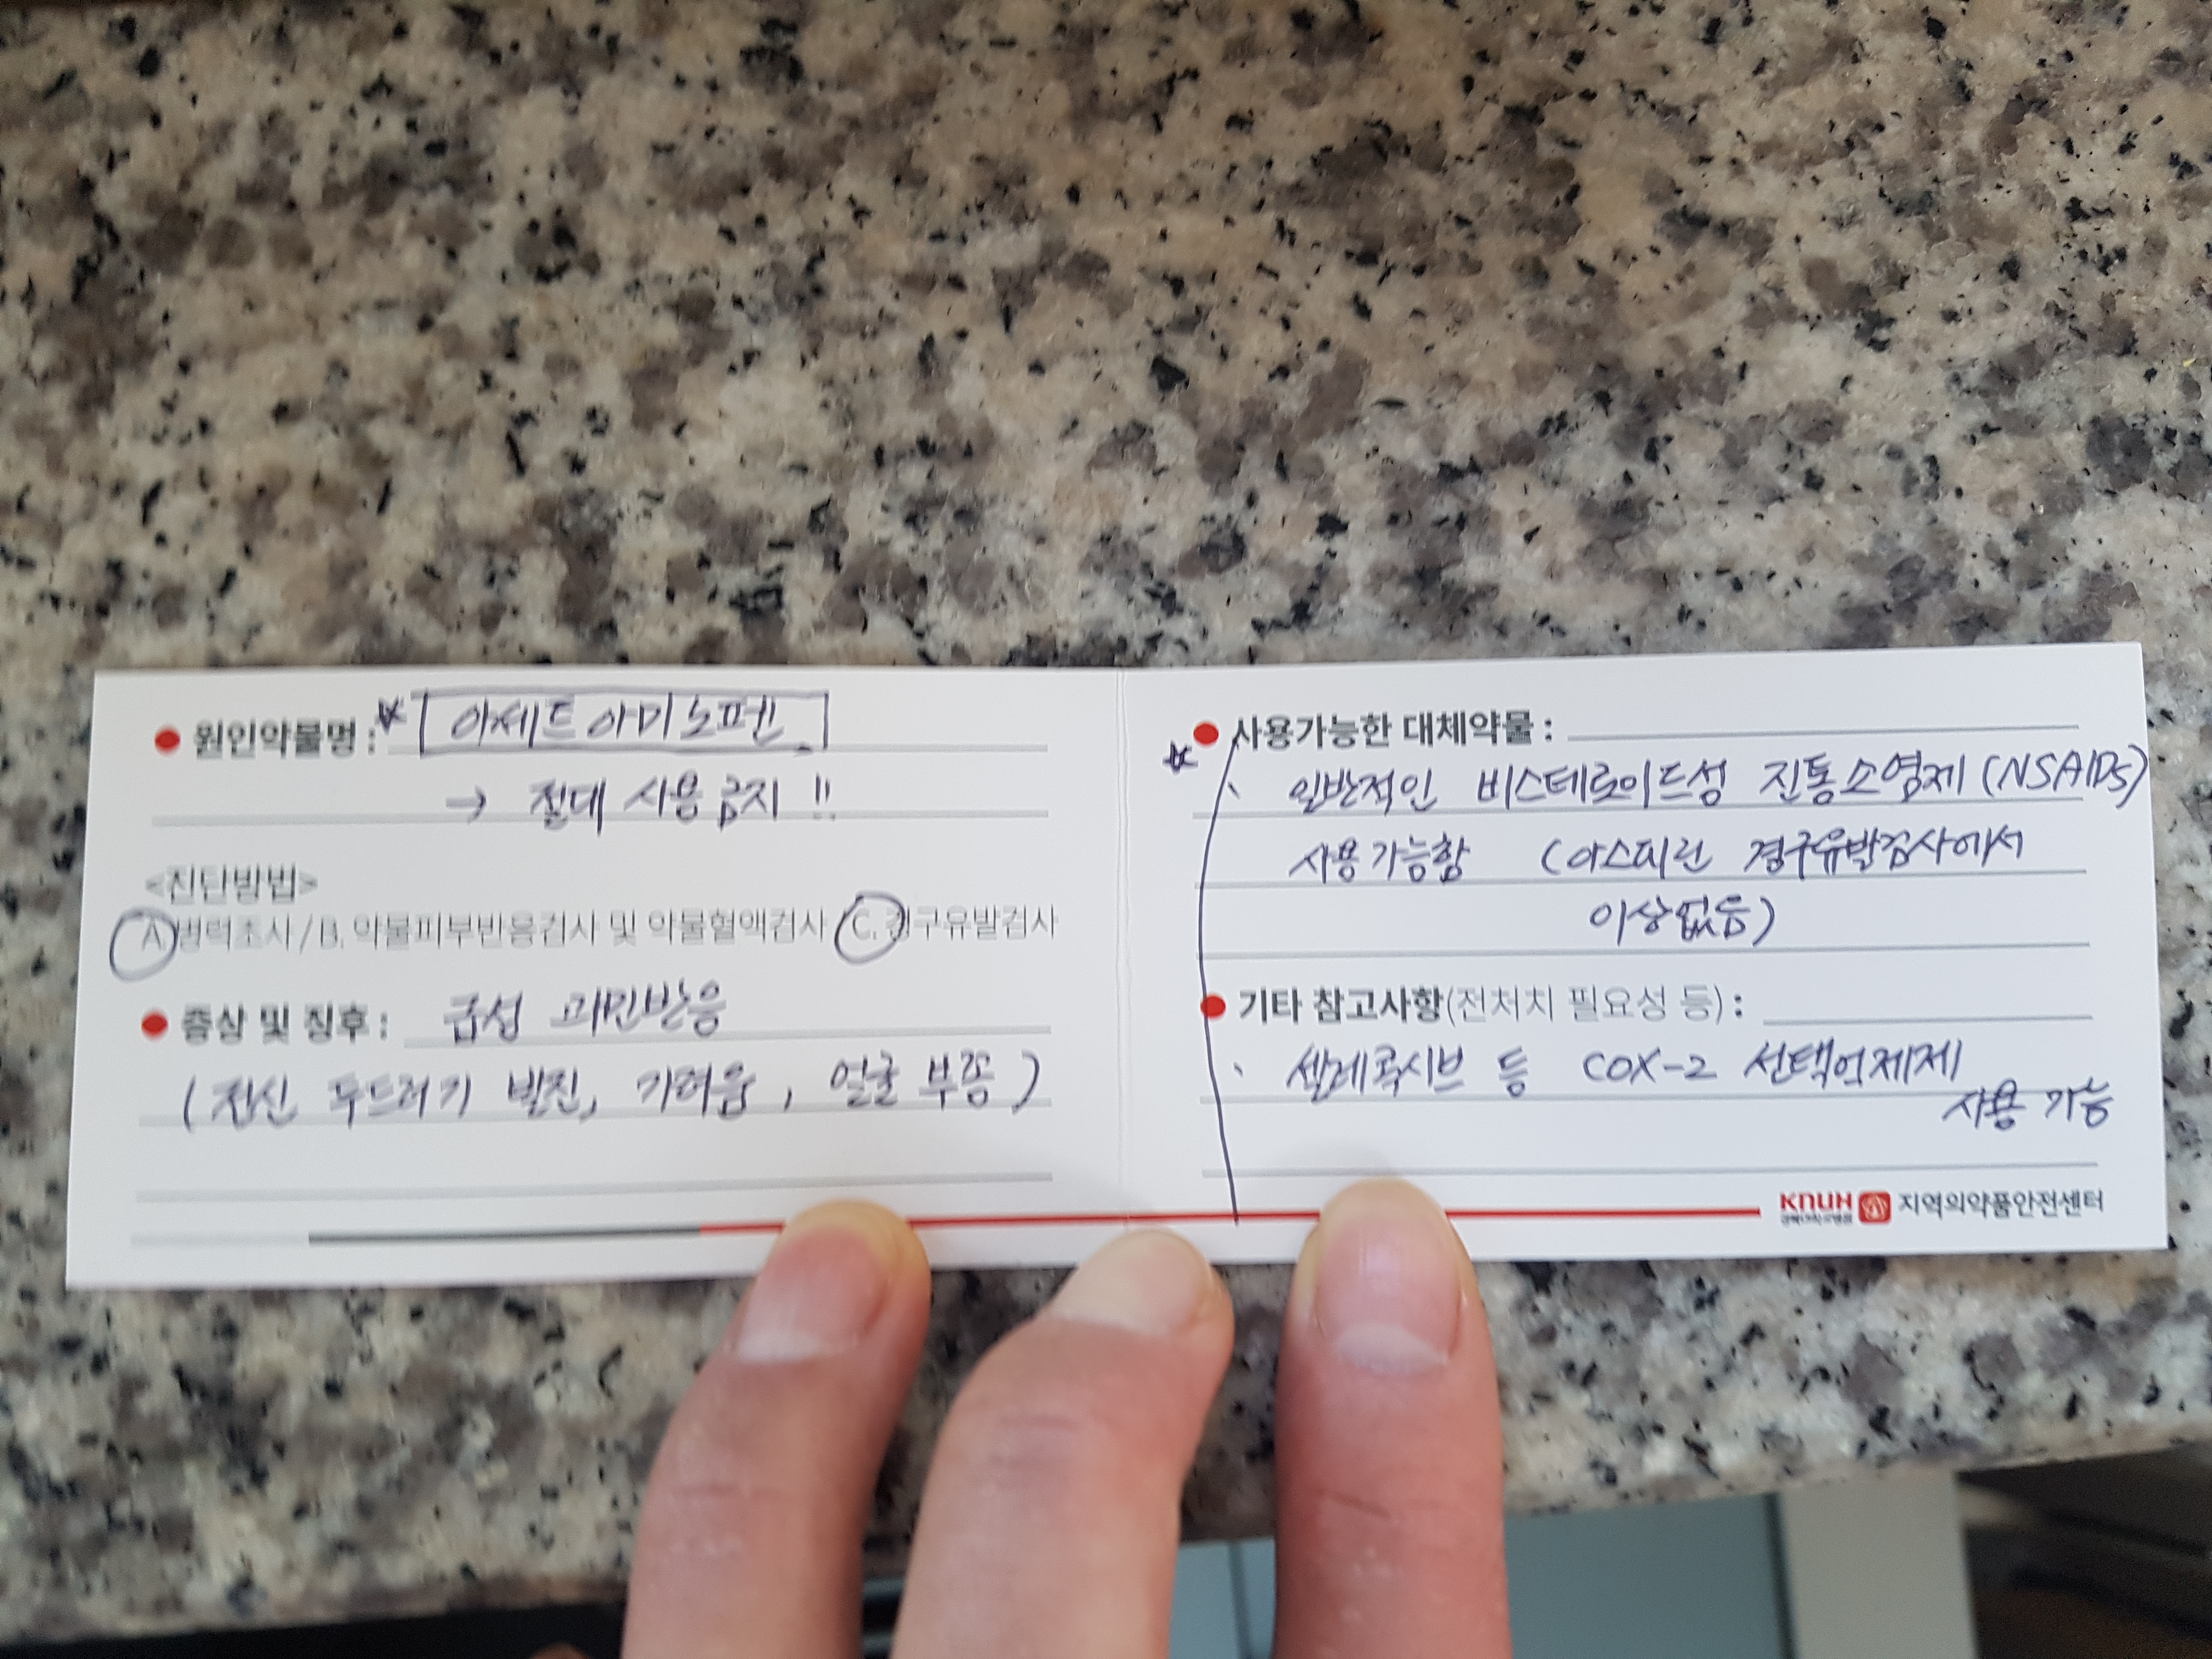 ● 원인약물명 : ☆ 아세트아미노펜
→ 절대 사용 금지 !!
<진단방법>
A. 병력조사 / B. 약물피부반응검사 및 약물혈액검사 / C. 경구유발검사
● 증상 및 징후 : 급성 과민반응
( 전신 두드러기 발진, 가려움, 얼굴 부종 )
● 사용가능한 대체약물 :
☆ 일반적인 비스테로이드성 진통소염제 (NSAIDs)
사용가능함 (아스피린 경구유발검사에서
이상없음)
● 기타 참고사항(전처치 필요성 등) :
세레콕시브 등 COX-2 선택억제제
사용 가능
KNUH 경북대학교병원 지역의약품안전센터